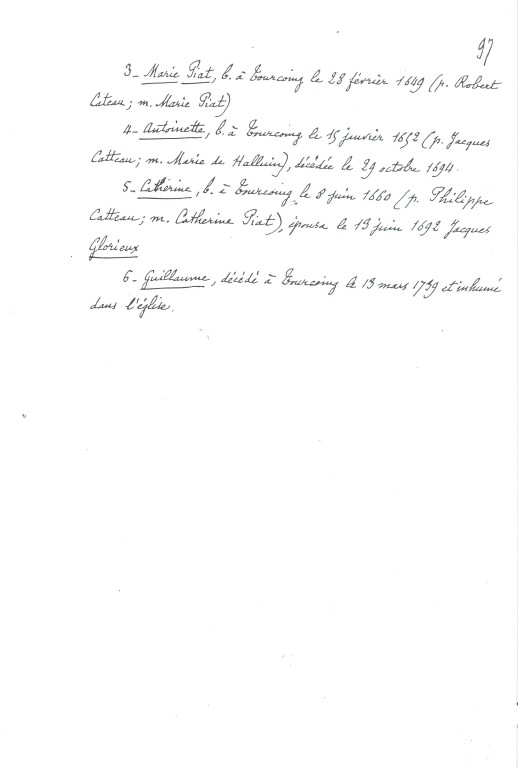 97
3_ Marie Piat, b. à Tourcoing le 28 février 1649 (p. Robert
Cateau; m. Marie Piat)
4_ Antoinette, b. à Tourcoing le 15 janvier 1652 (p. Jacques
Catteau; m. Marie de Halluin), décédée le 29 octobre 1694.
5_ Cathérine, b. à Tourcoing le 8 juin 1660 (p. Philippe
Catteau; m. Catherine Piat), épousa le 13 juin 1692 Jacques
Glorieux
6_ Guillaume, décédé à Tourcoing le 13 mars 1739 et inhumé
dans l'église.